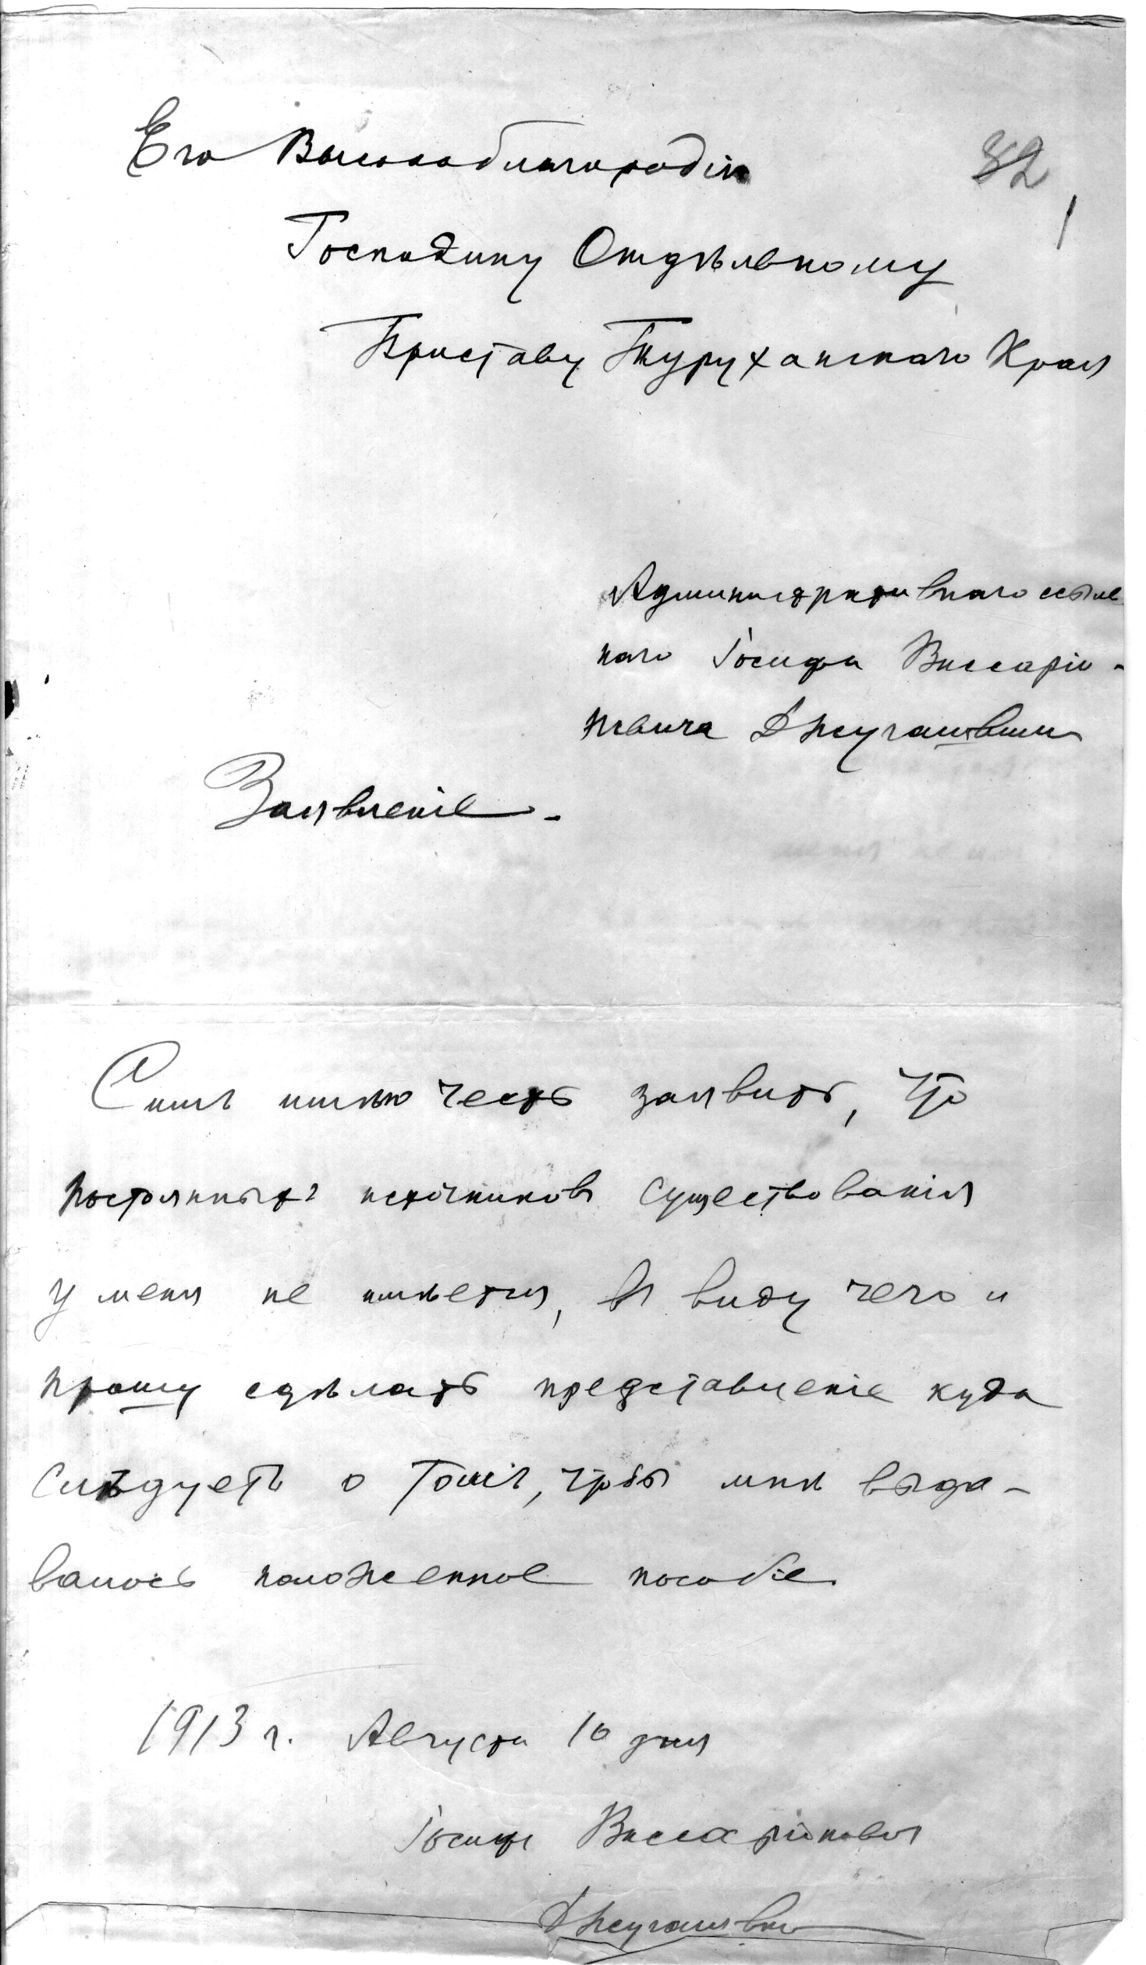 Его Высокоблагородію
32
Господину Отдѣльному
Приставу Туруханскаго Края
Административнаго ссыль
наго Іосифа Виссаріо-
новича Джугашвили
Заявленіе.
Симъ имѣю честь заявить, что
постоянныхъ источниковъ существованія
у меня не имѣется, въ виду чего и
прошу сдѣлать представленіе куда
слѣдуетъ о томъ, чтобы мнѣ выда-
валось положенное пособіе
1913 г. Августа 10 дня
Іосифъ Виссаріоновъ
Джугашвили